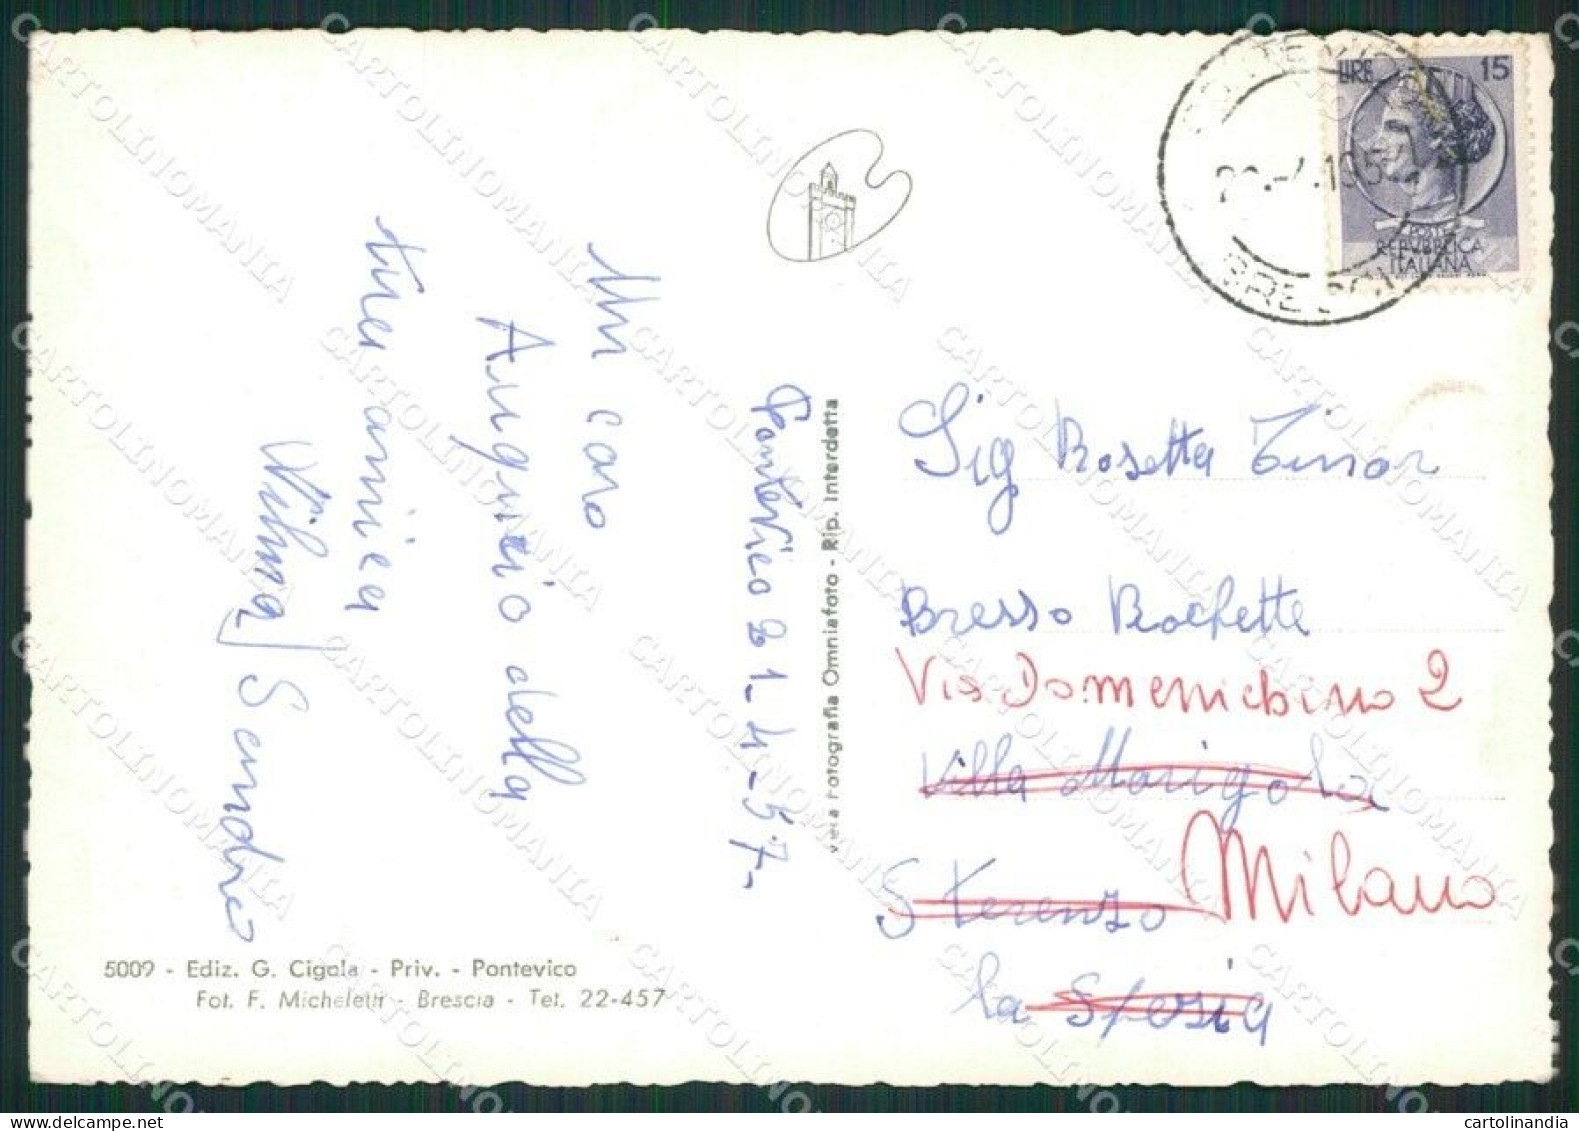 LIRE 15
POSTE
REPUBBLICA
ITALIANA
PONTEVICO
BRESCIA
Pontevico 21-4-57-
Un caro
Augurio della
tua amica
Wilma
Sandro
Sig Rosetta
Bresso Rochette
Via Domenichino 2
Villa Marigola
S Terenzo Milano
La Spezia
vera Fotografia Omniafoto - Rip. Interdetta
5009 - Ediz. G. Cigala - Priv. - Pontevico
Fot. F. Micheletti - Brescia - Tel. 22-457
CARTOLINOMANIA
cartolinandia